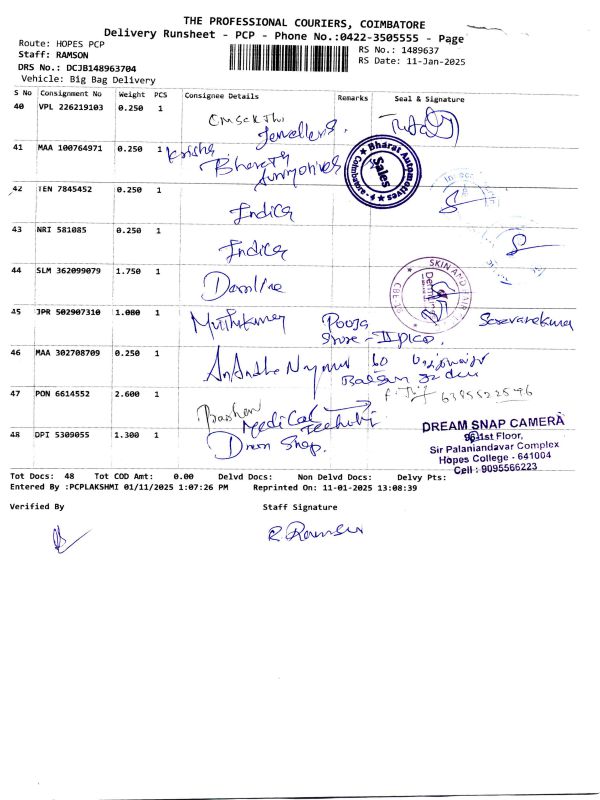 THE PROFESSIONAL COURIERS, COIMBATORE
Delivery Runsheet - PCP - Phone No.:0422-3505555 - Page
Route: HOPES PCP
RS No.: 1489637
Staff: RAMSON
RS Date: 11-Jan-2025
DRS No.: DCJB148963704
Vehicle: Big Bag Delivery
S No Consignment No Weight PCS Consignee Details Remarks Seal & Signature
40 VPL 226219103 0.250 1
Jewellers.
41 MAA 100764971 0.250 1 Krisha
Bharath
Automotives
Bharat Automotives
Sales
Coimbatore - 4
42 TEN 7845452 0.250 1
Indica
43 NRI 581085 0.250 1
Indica
44 SLM 362099079 1.750 1
SKIN AND HAIR
45 JPR 502907310 1.080 1 Muthukumar Pooja
Store -
Saravanakumar
46 MAA 302708709 0.250 1
47 PON 6614552 2.600 1
6385522596
Medical
48 DPI 5309055 1.300 1
Dream Snap.
DREAM SNAP CAMERA
96-1st Floor,
Sir Palaniandavar Complex
Hopes College - 641004
Cell : 9095566223
Tot Docs: 48 Tot COD Amt: 0.00 Delvd Docs: Non Delvd Docs: Delvy Pts:
Entered By :PCPLAKSHMI 01/11/2025 1:07:26 PM Reprinted On: 11-01-2025 13:08:39
Verified By Staff Signature
R. Ramson